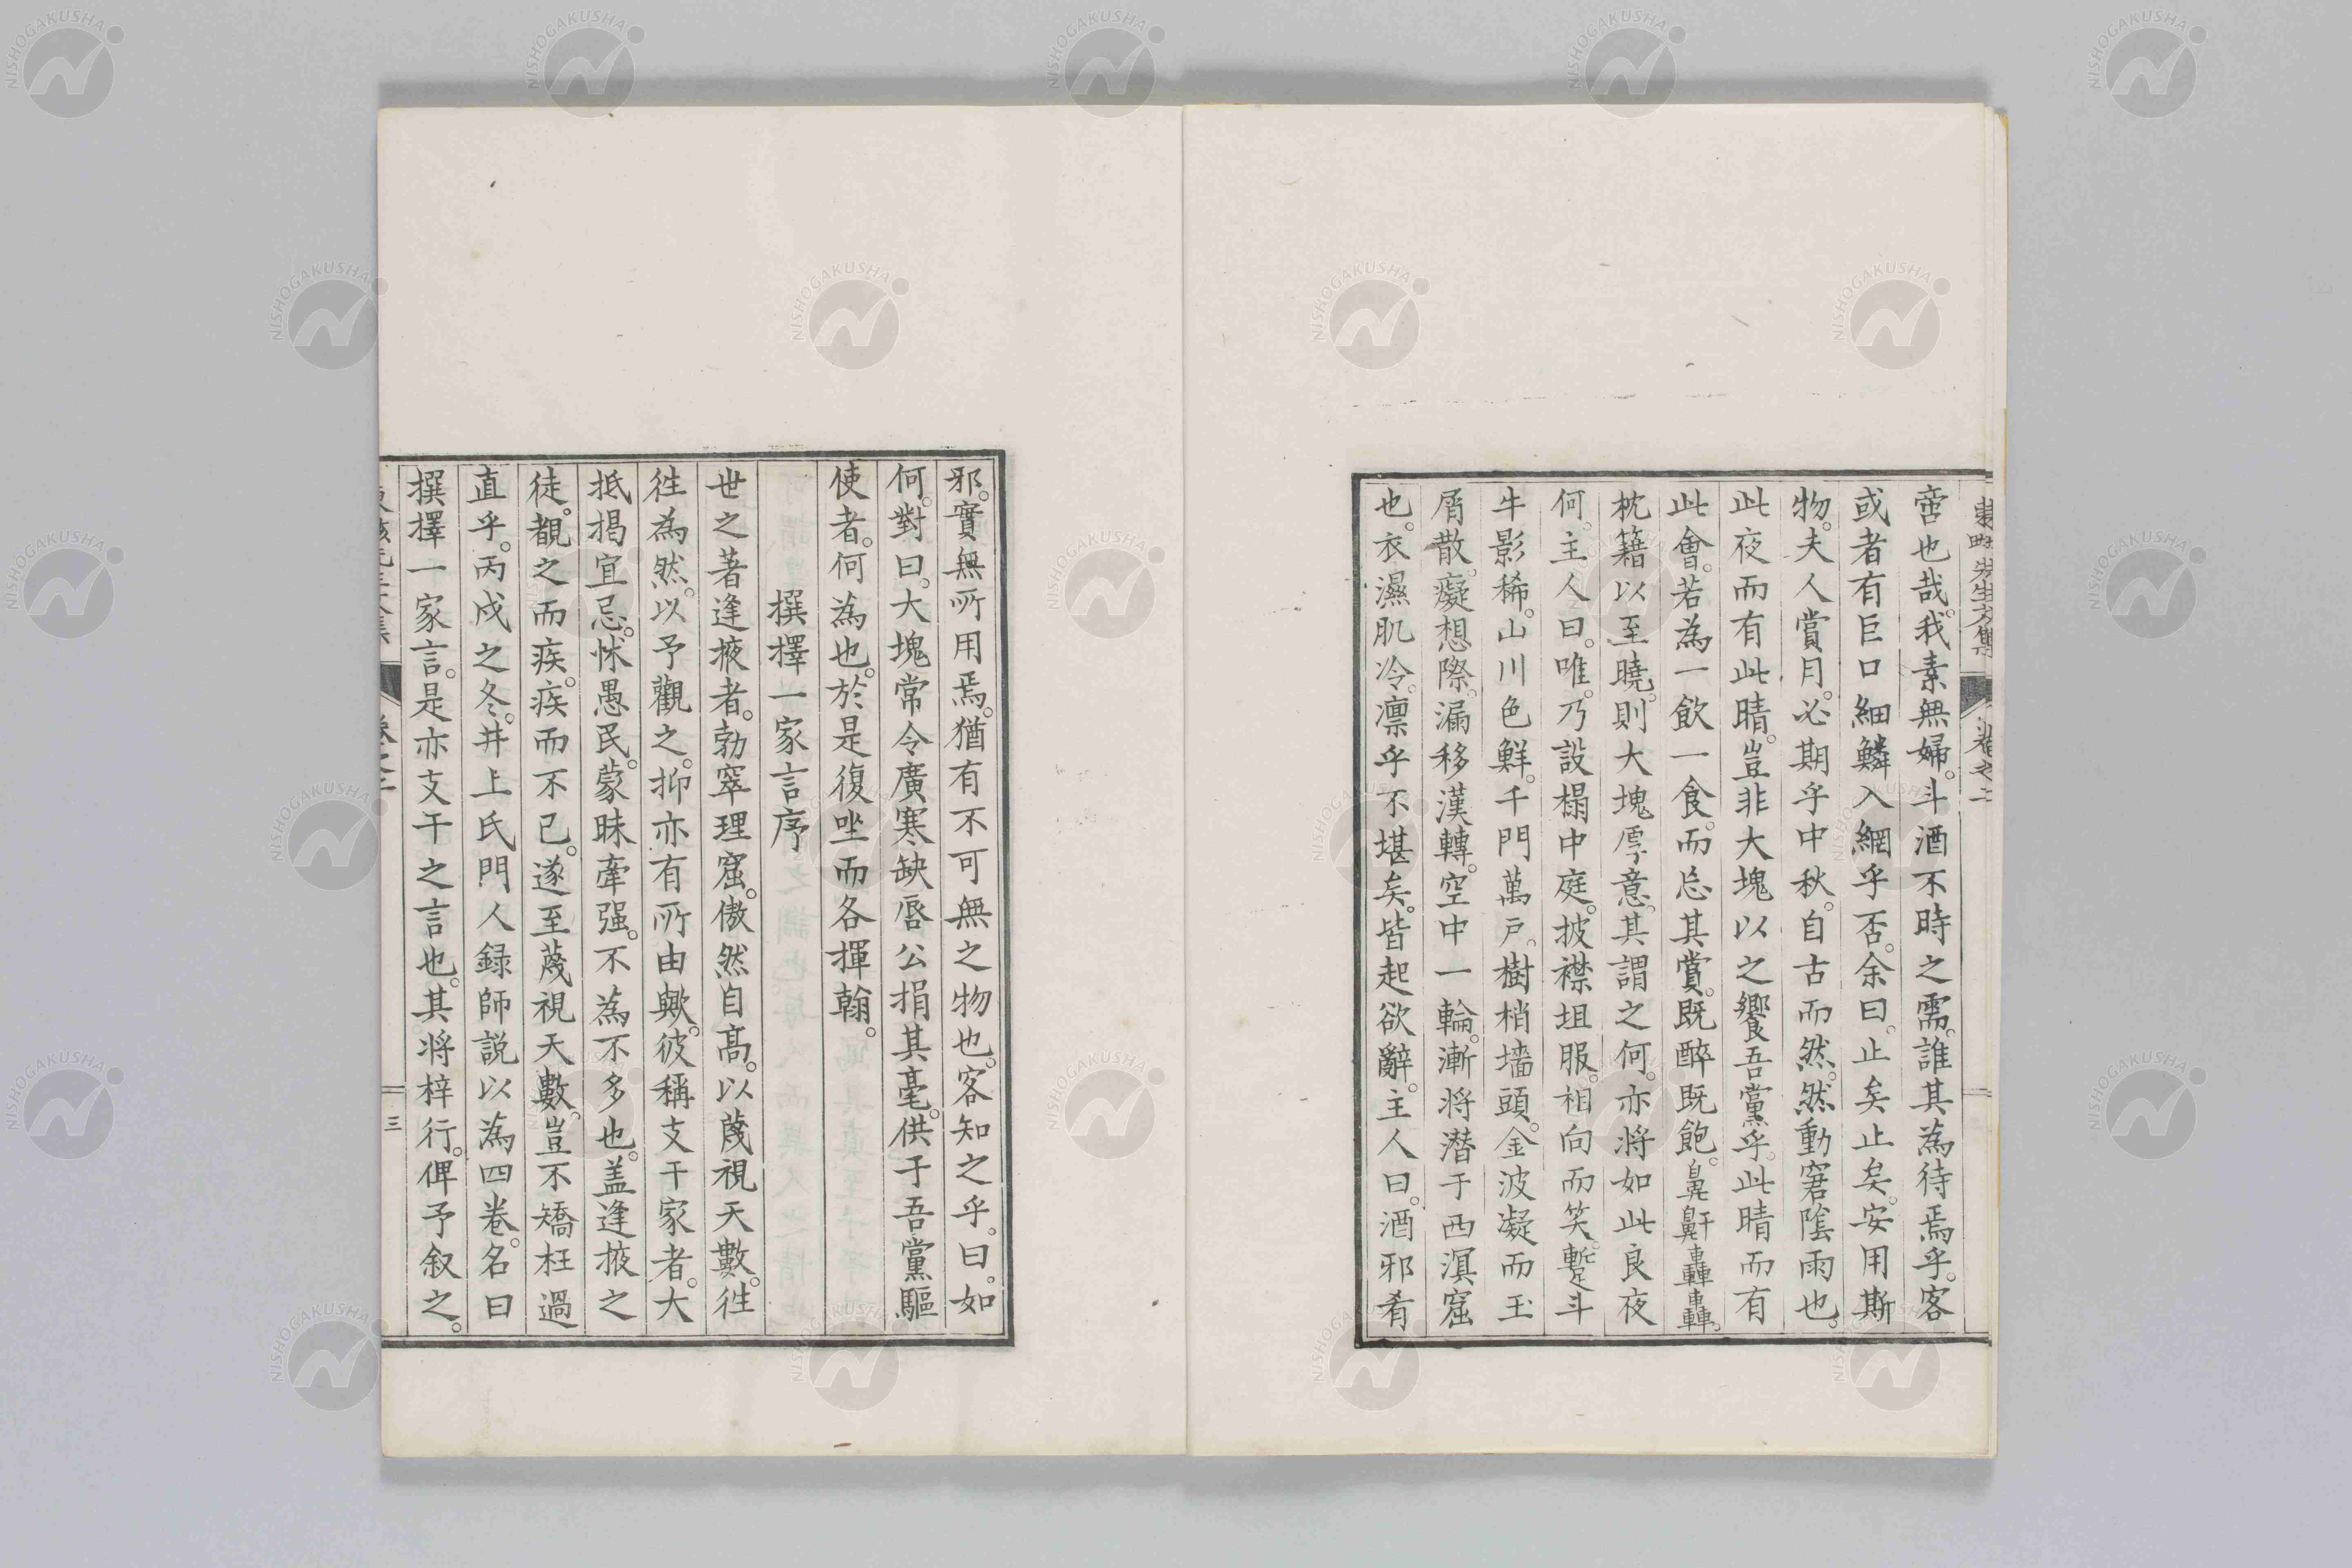 啻也哉。我素無婦。斗酒不時之需。誰其為待焉乎。客
或者有巨口細鱗入網乎否。余曰。止矣止矣。安用斯
物。夫人賞月。必期乎中秋。自古而然。然動窘陰雨也。
此夜而有此晴。豈非大塊以之饗吾黨乎。此晴而有
此會。若為一飲一食。而忘其賞。既醉既飽。鼻鼾轟轟。
枕籍以至曉。則大塊厚意。其謂之何。亦将如此良夜
何。主人曰。唯。乃設榻中庭。披襟坦服。相向而笑。蹔斗
牛影稀。山川色鮮。千門萬戶。樹梢墻頭。金波凝而玉
屑散。癡想際。漏移漢轉。空中一輪。漸将潛于西溟窟
也。衣濕肌冷。凛乎不堪矣。皆起欲辭。主人曰。酒邪肴
卷之二
邪。實無所用焉。猶有不可無之物也。客知之乎。曰。如
何。對曰。大塊常令廣寒缺唇公捐其毫。供于吾黨驅
使者。何為也。於是復坐而各揮翰。
撰擇一家言序
世之著逢掖者。勃窣理窟。傲然自高。以蔑視天數。往
往為然。以予觀之。抑亦有所由歟。彼稱支干家者。大
抵揭宜忌。怵愚民。蒙昧牽强。不為不多也。盖逢掖之
徒。覩之而疾。疾而不已。遂至蔑視天數。豈不矯枉過
直乎。丙戌之冬。井上氏門人録師説以為四卷。名曰
撰擇一家言。是亦支干之言也。其将梓行。俾予叙之。
三
NISHOGAKUSHA